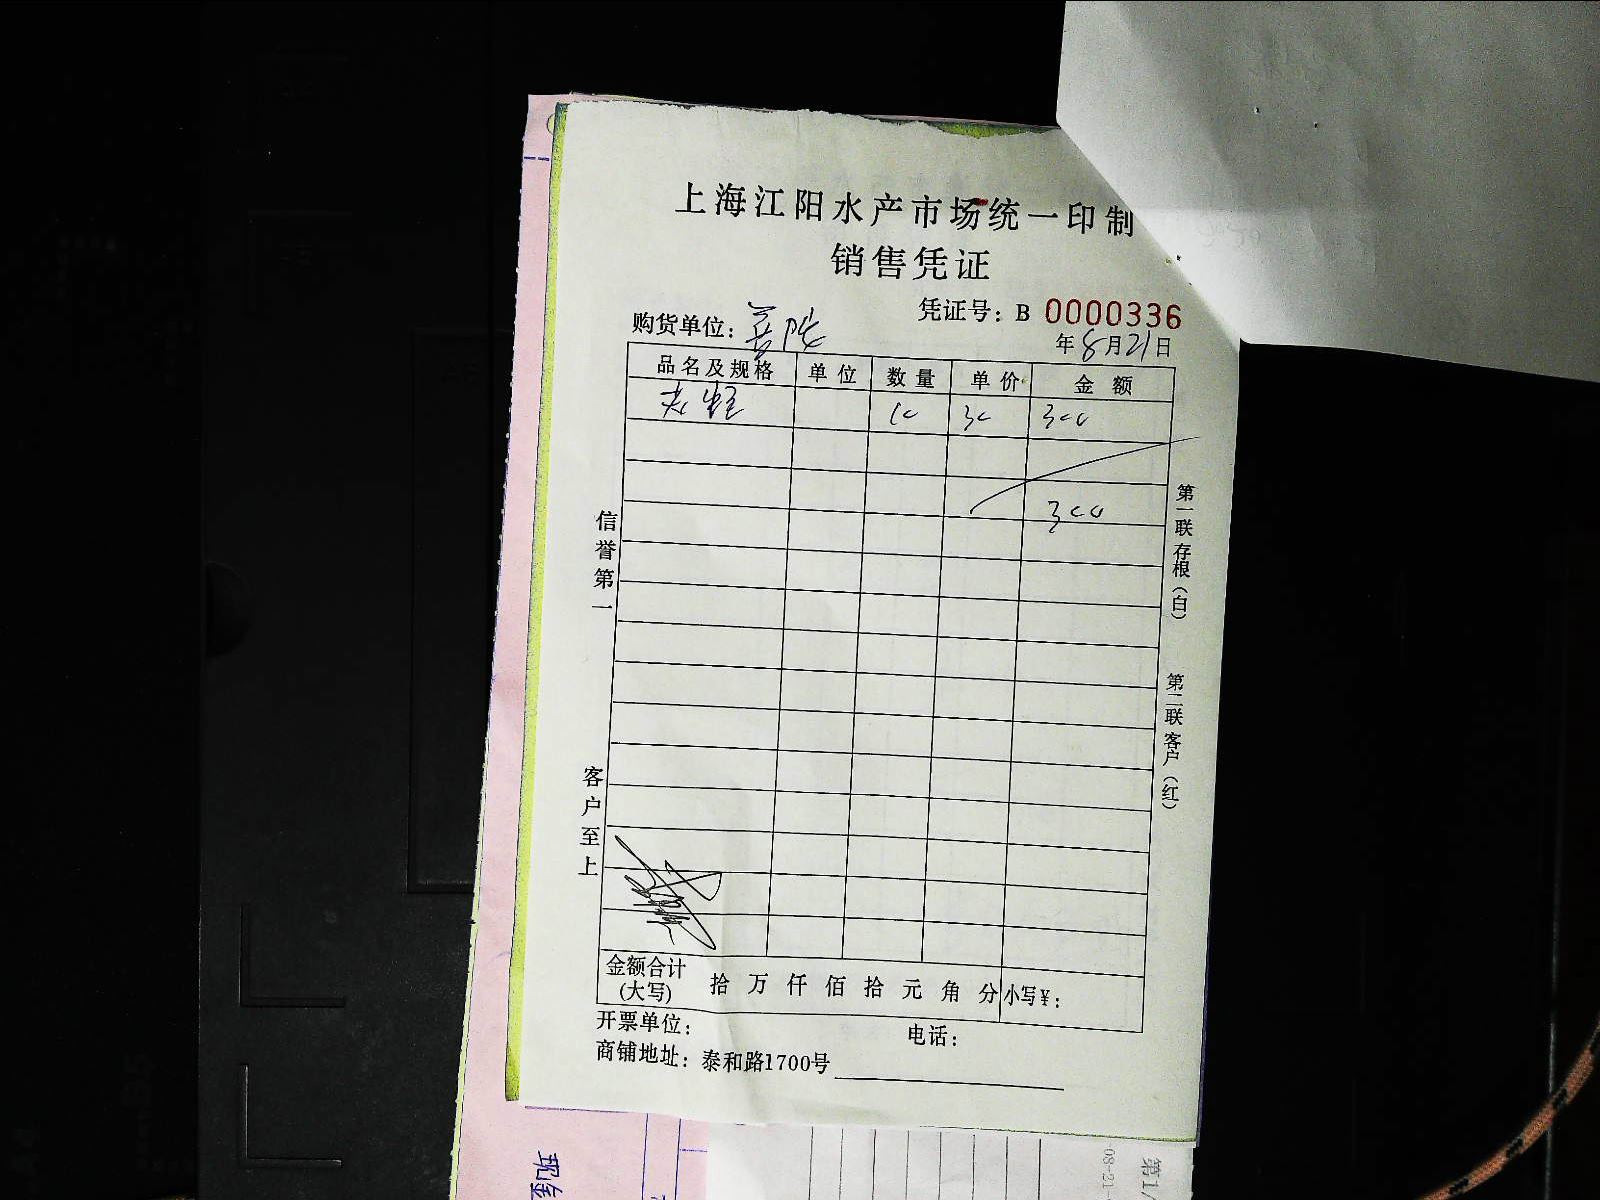 上海江阳水产市场统一印制
销售凭证
凭证号：B 0000336
购货单位：
年8月21日
品名及规格 单位 数量 单价 金额
10 30 300
300
信誉第一
客户至上
第一联存根（白）
第二联客户（红）
金额合计（大写） 拾 万 仟 佰 拾 元 角 分 小写¥：
开票单位： 电话：
商铺地址：泰和路1700号
现金
08-21
第1/